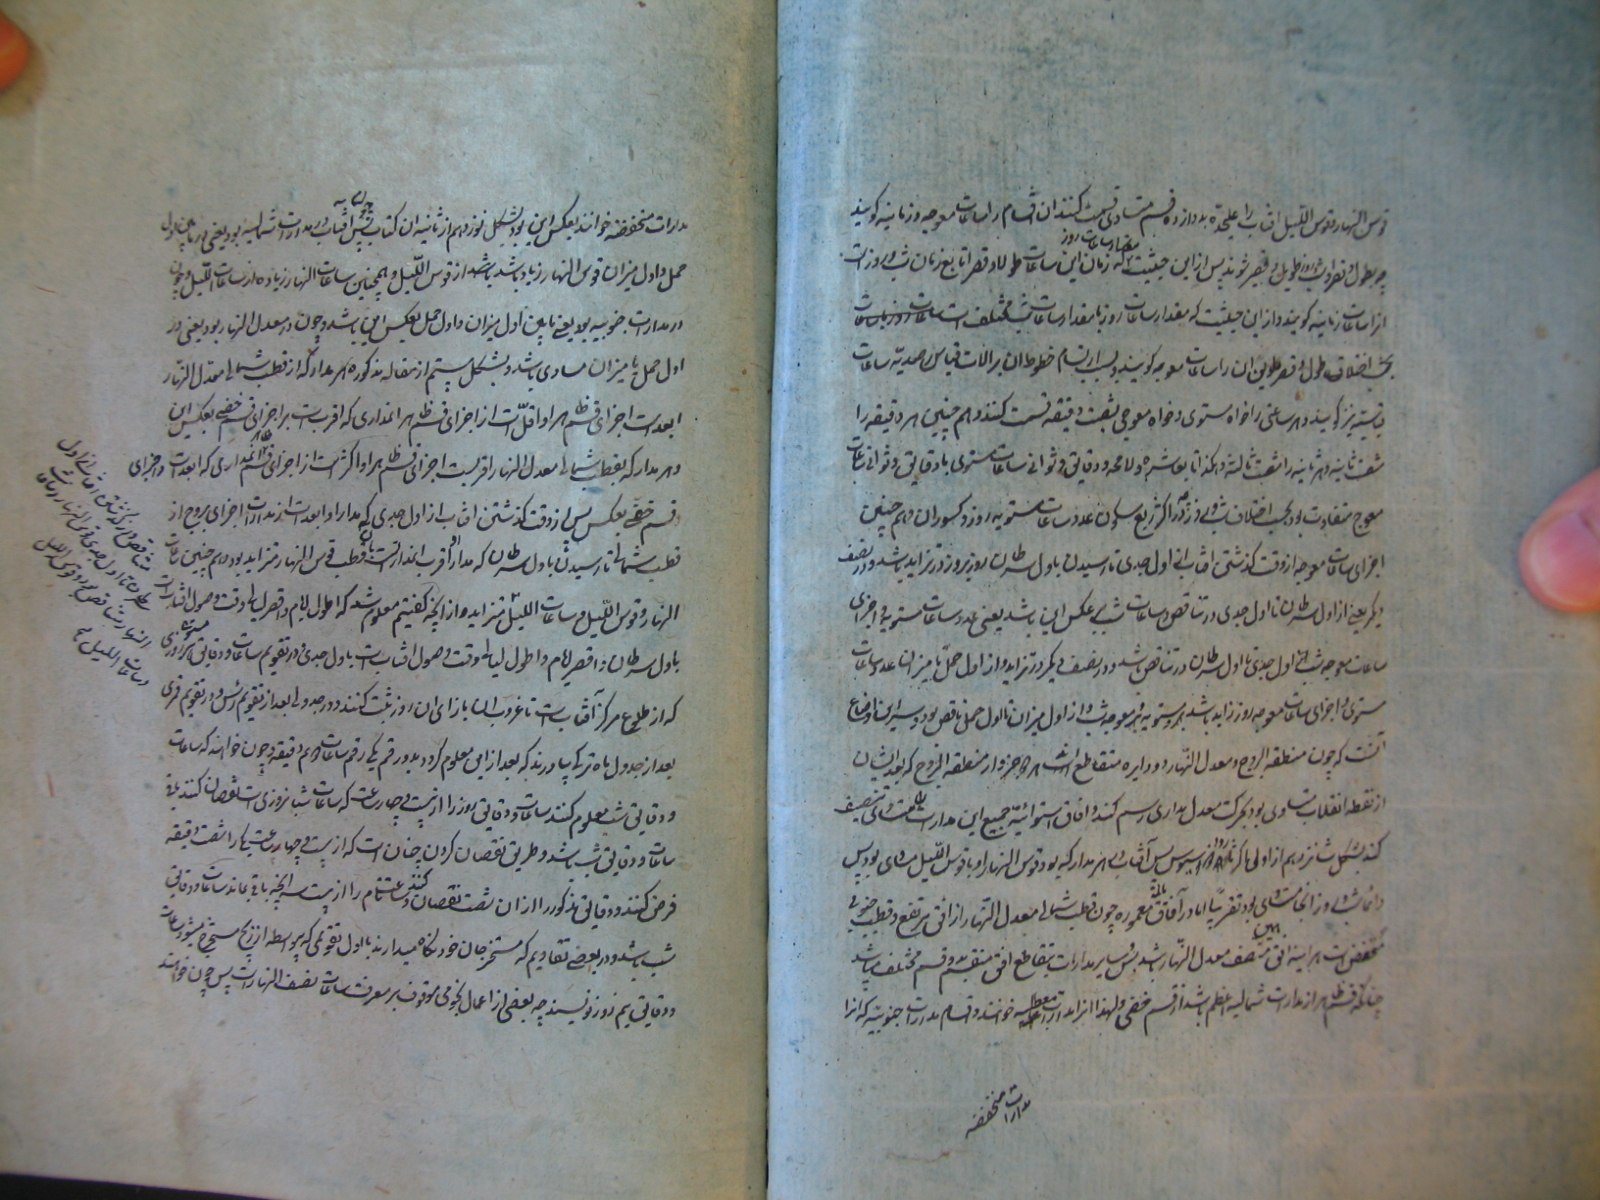 قوس النهار و قوس اللیل افتاب را علیحده بدوازده قسم متساوی قسمت کنند ان اقسام را ساعات معوجه و زمانیه کویند
چه بطول و قصر شب و روز طویل و قصیر شوند پس از این حیثیت که زمان این ساعات طولا و قصرا تابع زمان شب و روز است
مقدار ساعات روز
انرا ساعات زمانیه کویند و از این حیثیت که مقدار ساعات روز با مقدار ساعات شب مختلف است
بحسب اختلاف طول و قصر طوین ان را ساعات معوجه کویند و بسبب ارتسام خطوط ان بر الات قیاس رصدیه ساعات
قیاسیه نیز کویند و هر ساعتی را خواه مستوی و خواه معوج بشصت دقیقه قسمت کنند و هم چنین هر دقیقه را
بشصت ثانیه و هر ثانیه را بشصت ثالثه و هکذا تا بعاشره و لا محاله دقایق و ثوانی ساعات مستوی با دقایق و ثوانی ساعات
معوج متفاوت بود بحسب اختلاف شب و روز در اکثر ربع مسکون عدد ساعات مستویه روز و کسور ان و هم چنین
اجزای ساعات معوجه از وقت کذشتن افتاب از اول جدی تا رسیدن باول سرطان روز بروز در تزاید باشد و در نصف
دیکر یعنی از اول سرطان تا اول جدی در تناقص و ساعات شب بر عکس این باشد یعنی عدد ساعات مستویه و اجزای
ساعات معوجه شب از اول جدی تا اول سرطان در تناقص باشد و در نصف دیکر در تزاید و از اول حمل تا میزان عدد ساعات
مستوی و اجزای ساعات معوجه روز زاید باشد بر مستویه و معوجه شب و از اول میزان تا اول حمل ناقص بود و سر این اوضاع
آنست که چون منطقة البروج و معدل النهار دو دایره متقاطع اند هر دو جزو از منطقة البروج که بعد ایشان
از نقطه انقلاب متساوی بود بحرکت معدل مداری رسم کنند و افاق استوائیه جمیع این مدارات را تنصیف
کند بشکل شانزدهم از اولی اکر پس آفتاب در هر مدار که بود قوس النهار او با قوس اللیل مساوی بود پس
دائما شب و روز انجا متساوی بود تقریبا اما در آفاق مائله معموره چون قطب شمالی معدل النهار از افق مرتفع و قطب جنوبی
منخفض است هر اینه افق منصف معدل النهار باشد پس سایر مدارات بتقاطع افق منقسم بدو قسم مختلف باشد
چنانکه قسم ظاهر از مدارات شمالیه اعظم باشد از قسم خفی و لهذا انرا خوانند و اقسام مدارات جنوبیه که انرا
مدارات منخفضه
مدارات منخفضه خوانند بعکس این بود بشکل نوزدهم از ثانیه ان کتاب پس چون افتاب در مدارات شمالیه بود یعنی در مابین اول
حمل و اول میزان قوس النهار زیاد باشد از قوس اللیل و همچنین ساعات النهار زیاده از ساعات اللیل و چون
در مدارات جنوبیه بود یعنی مابین اول میزان و اول حمل بعکس این باشد و چون در معدل النهار بود یعنی در
اول حمل یا میزان مساوی باشد و بشکل بیستم از مقاله مذکوره هر مدار که از قطب شمالی معدل النهار
ابعد است اجزای قسم ظاهر او اقل است از اجزای قسم ظاهر انمداری که اقربست بر اجزای قسم خفی بعکس این
و هر مدار که بقطب شمالی معدل النهار اقربست اجزای قسم ظاهر او اکثر است از اجزای قسم ظاهر انمداری که ابعدست و اجزای
قسم خفی بعکس پس از وقت کذشتن افتاب از اول جدی که مدار او ابعد است از مدارات اجزای بروج از
قطب شمالی تا رسیدن باول سرطان که مدار او اقرب انمدارات است بان قطب قوس النهار متزاید بود و هم چنین ساعات
النهار و قوس اللیل و ساعات اللیل متزاید و از انچه کفتیم معلوم شد که اطول ایام و اقصر لیالی وقت وصول افتابست
باول سرطان و اقصر ایام و اطول لیالی وقت وصول افتابست باول جدی و در تقویم ساعات و دقایق مستویه هر روزی
که از طلوع مرکز آفتابست تا غروب ان بازای ان روز ثبت کنند در جدولی بعد از تقویم رأس و در تقویم فرس
بعد از جدول ماه ترکی بیاورند که بعد ازین معلوم کردد بدو رقم یکی رقم ساعات دوم دقیقه و چون خواهند که ساعات
و دقایق شب معلوم کنند ساعات و دقایق روز را از بیست و چهار ساعت که ساعات شبانروزی است نقصان کنند باقی
ساعات و دقایق شب باشد و طریق نقصان کردن چنان است که از بیست و چهار ساعت یکی را شصت دقیقه
فرض کنند و دقایق مذکور را از ان شصت نقصان کنند و ساعات تام را از بیست و سه انچه باقی ماند ساعات و دقایق
شب باشد و در بعضی تقاویم که مستخرجان خود نکاه میدارند یا اول تقویمی که بواسطه از زیج مستخرج میشود ساعات
و دقایق نیم روز نویسند چه بعضی از اعمال نجومی موقوف بر معرفت ساعات نصف النهار است پس چون خواهند
متناقص و از کذشتن افتاب از اول
سرطان تا اول جدی قوس النهار و ساعات
النهار متناقص بود و قوس اللیل
و ساعات اللیل